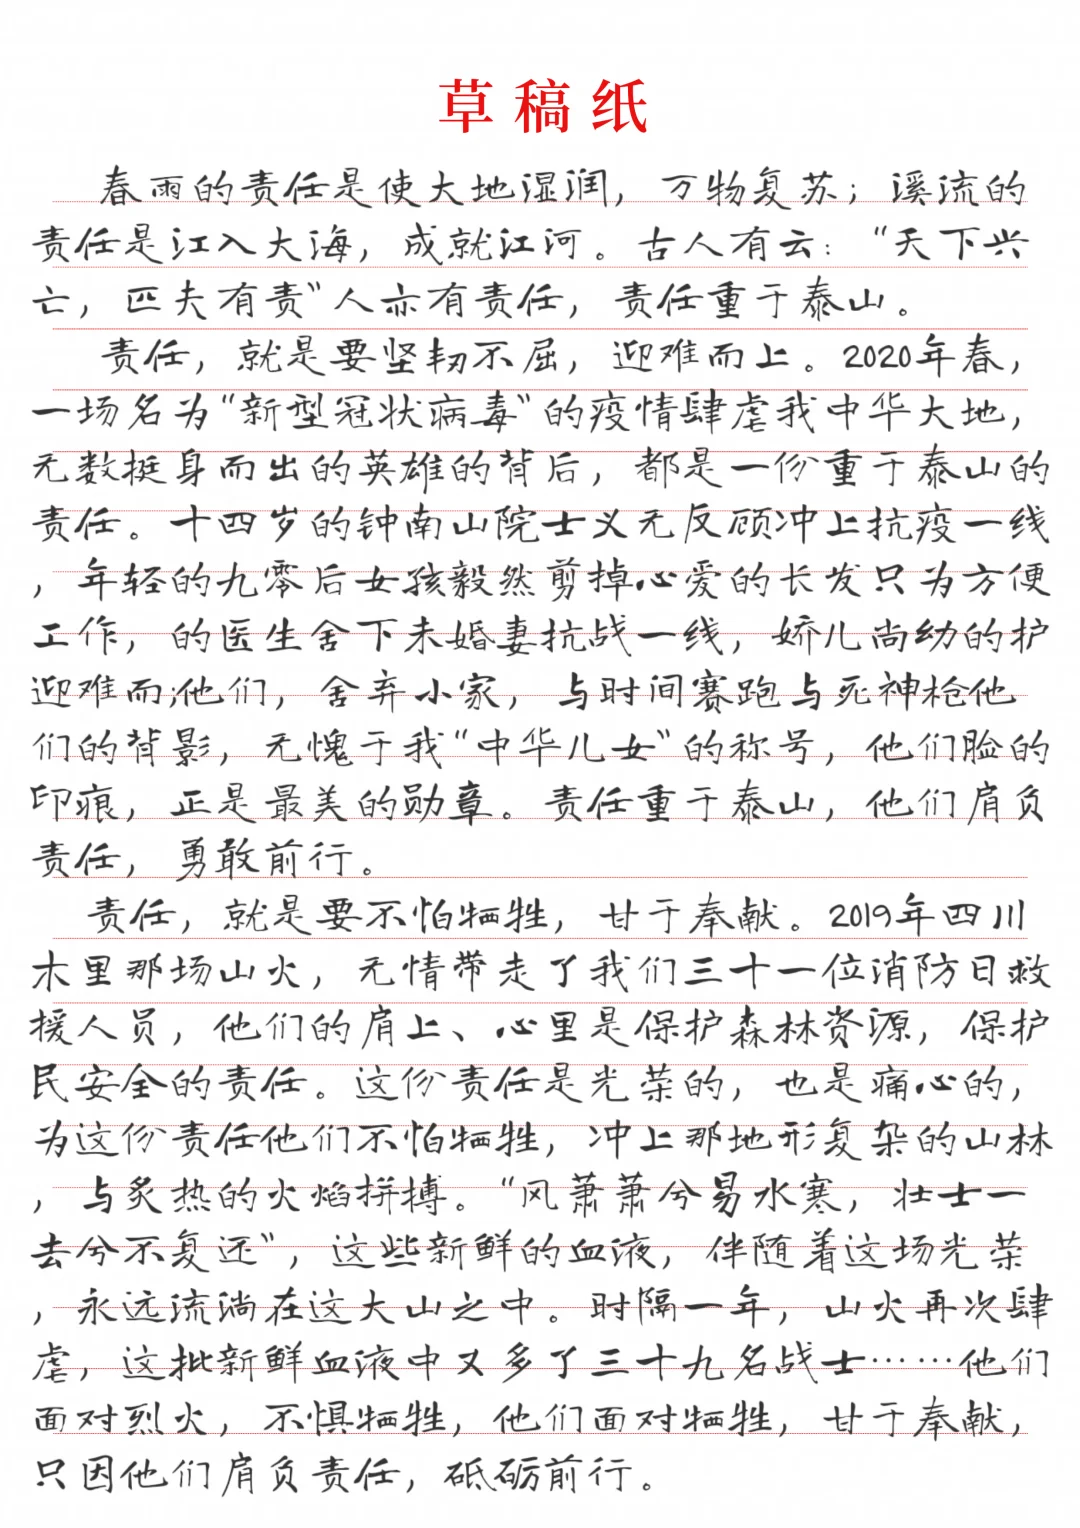 草稿纸
春雨的责任是使大地湿润，万物复苏；溪流的
责任是江入大海，成就江河。古人有云：“天下兴
亡，匹夫有责”人亦有责任，责任重于泰山。
责任，就是要坚韧不屈，迎难而上。2020年春，
一场名为“新型冠状病毒”的疫情肆虐我中华大地，
无数挺身而出的英雄的背后，都是一份重于泰山的
责任。十四岁的钟南山院士义无反顾冲上抗疫一线
，年轻的九零后女孩毅然剪掉心爱的长发只为方便
工作，的医生舍下未婚妻抗战一线，娇儿尚幼的护
迎难而;他们，舍弃小家，与时间赛跑与死神枪他
们的背影，无愧于我“中华儿女”的称号，他们脸的
印痕，正是最美的勋章。责任重于泰山，他们肩负
责任，勇敢前行。
责任，就是要不怕牺牲，甘于奉献。2019年四川
木里那场山火，无情带走了我们三十一位消防日救
援人员，他们的肩上、心里是保护森林资源，保护
民安全的责任。这份责任是光荣的，也是痛心的，
为这份责任他们不怕牺牲，冲上那地形复杂的山林
，与炙热的火焰拼搏。“风萧萧兮易水寒，壮士一
去兮不复还”，这些新鲜的血液，伴随着这场光荣
，永远流淌在这大山之中。时隔一年，山火再次肆
虐，这批新鲜血液中又多了三十九名战士……他们
面对烈火，不惧牺牲，他们面对牺牲，甘于奉献，
只因他们肩负责任，砥砺前行。